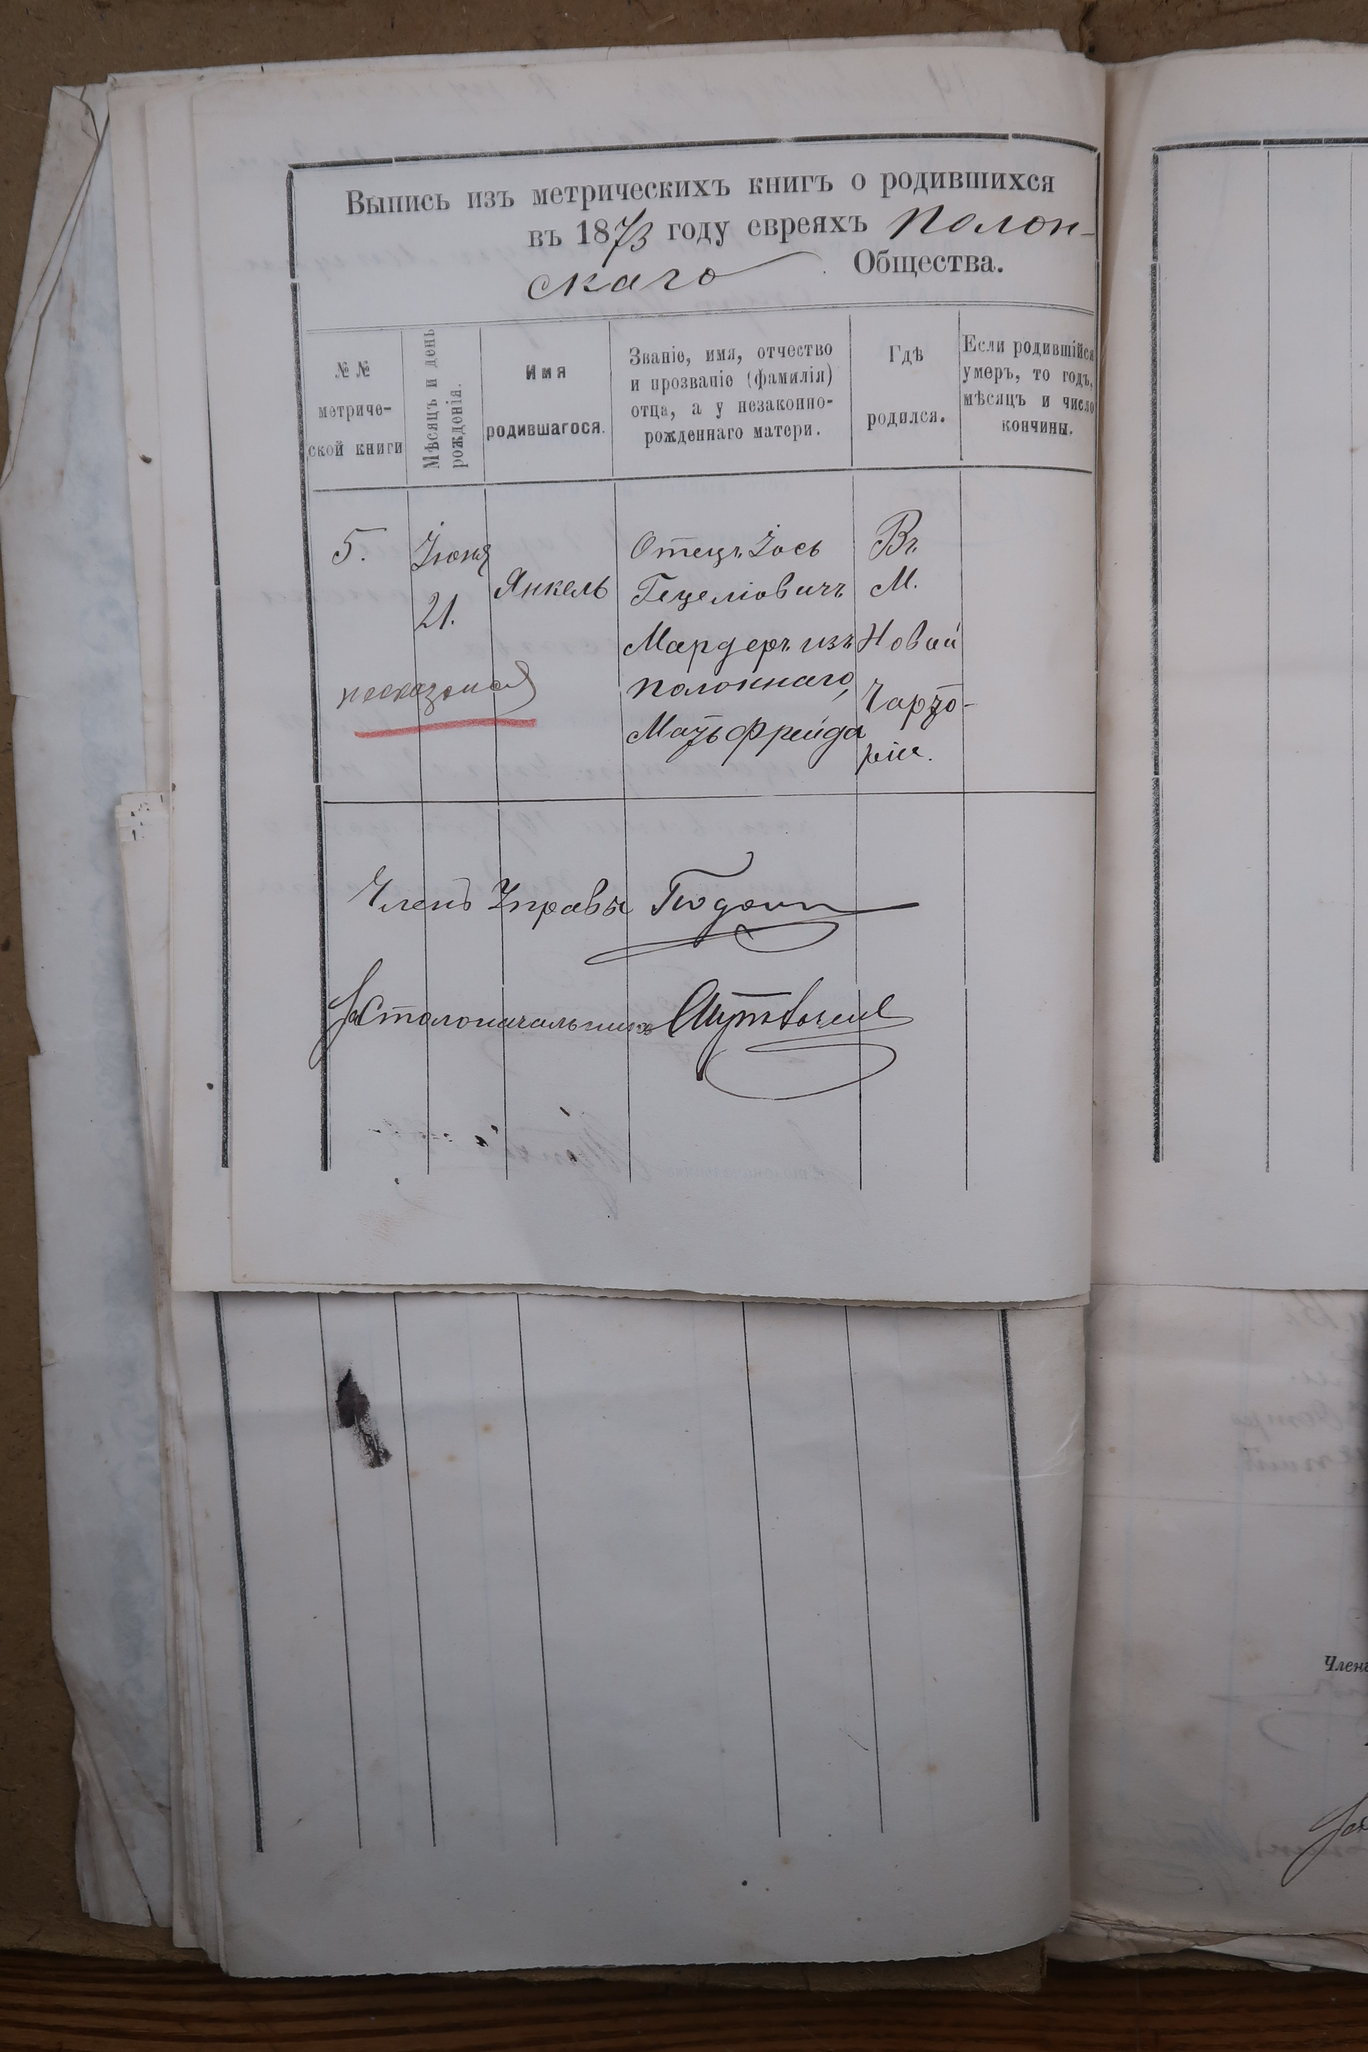 Выпись изъ метрическихъ книгъ о родившихся
въ 1873 году евреяхъ Полон-
скаго Общества.
№ №
метриче-
ской книги
Мѣсяцъ и день
рожденія.
Имя
родившагося.
Званіе, имя, отчество
и прозваніе (фамилія)
отца, а у незаконно-
рожденнаго матери.
Гдѣ
родился.
Если родившійся
умеръ, то годъ,
мѣсяцъ и число
кончины.
5.
Іюня
21.
Янкель
Отецъ Іось
Гецеліовичъ
Мардеръ изъ
Полоннаго,
Мать Фрейда
Въ
М.
Новой
Чарто-
ріи.
Членъ Управы
За Столоначальника
Членъ
За